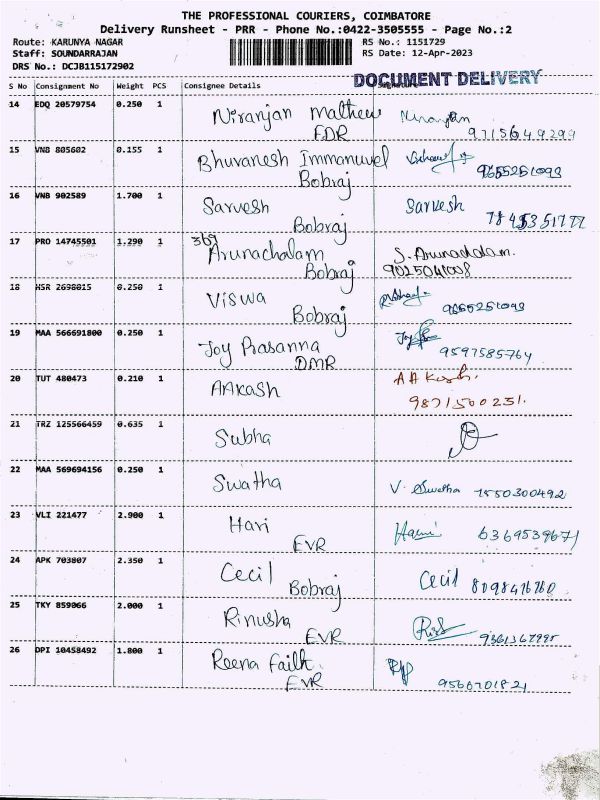 THE PROFESSIONAL COURIERS, COIMBATORE
Delivery Runsheet - PRR - Phone No.:0422-3505555 - Page No.:2
Route: KARUNYA NAGAR RS No.: 1151729
Staff: SOUNDARRAJAN RS Date: 12-Apr-2023
DRS No.: DCJB115172902
DOCUMENT DELIVERY
S No Consignment No Weight PCS Consignee Details
14 EDQ 20579754 0.250 1 Niranjan Mathew Niranjan
EDR 9715649299
15 VNB 805602 0.155 1 Bhuvanesh Immanuvel
Bobraj 9655251093
16 VNB 902589 1.700 1 Sarvesh Sarvesh
Bobraj
17 PRO 14745501 1.290 1 369 Arunachalam S. Arunachalam.
Bobraj 9025041008
18 HSR 2698015 0.250 1 Viswa
Bobraj 9655251093
19 MAA 566691800 0.250 1 Joy Prasanna Joy
DMR 9597585764
20 TUT 480473 0.210 1 AAkash
9871500231.
21 TRZ 125566459 0.635 1 Subha
22 MAA 569694156 0.250 1 Swatha V. Swatha 7550300492
23 VLI 221477 2.900 1 Hari Hari
EVR 6369539671
24 APK 703807 2.350 1 Cecil Cecil
Bobraj
25 TKY 859066 2.000 1 Rinusha
EVR
26 DPI 10458492 1.800 1 Reena Faith.
EVR